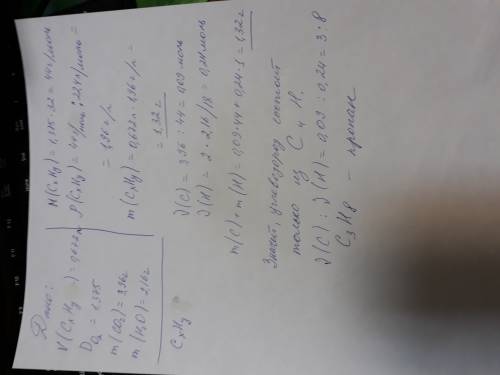 Дано:
V(CxHy) = 0,672л
D O₂ = 1,375
m(CO₂) = 3,96г
m(H₂O) = 2,16г
CxHy
M(CxHy) = 1,375·32 = 44г/моль
ρ(CxHy) = 44г/моль : 22,4л/моль =
= 1,96г/л
m(CxHy) = 0,672л·1,96г/л =
= 1,32г
ν(C) = 3,96 : 44 = 0,09моль
ν(H) = 2·2,16/18 = 0,24моль
m(C)+m(H) = 0,09·44+0,24·1 = 1,32г
Значит, углеводород состоит
только из C и H.
ν(C) : ν(H) = 0,09 : 0,24 = 3:8
C₃H₈ – пропан